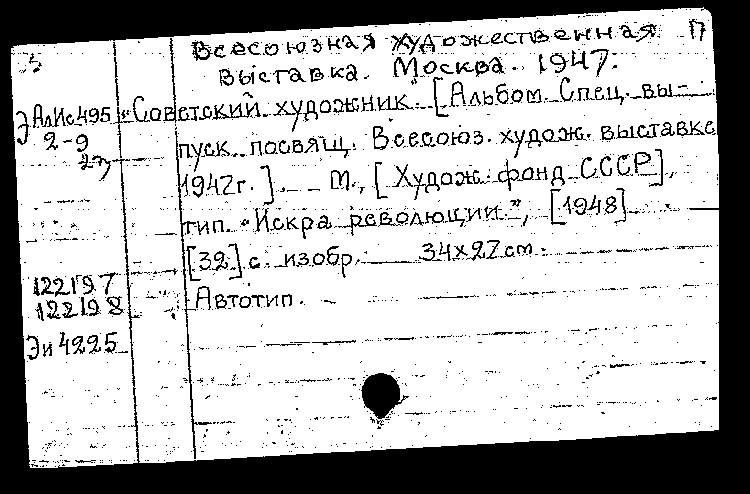 Всесоюзная художественная П
5 выставка. Москва. 1947.
Э АлИс495 „Советский художник". [Альбом. Спец. вы-
2-9 пуск. посвящ. Всесоюз. худож. выставке
1947г.]. М., [Худож. фонд СССР],
тип. "Искра революции", [1948]
[32] с. изобр. 34x27cm.
122197
122198 Автотип.
Эи 4225